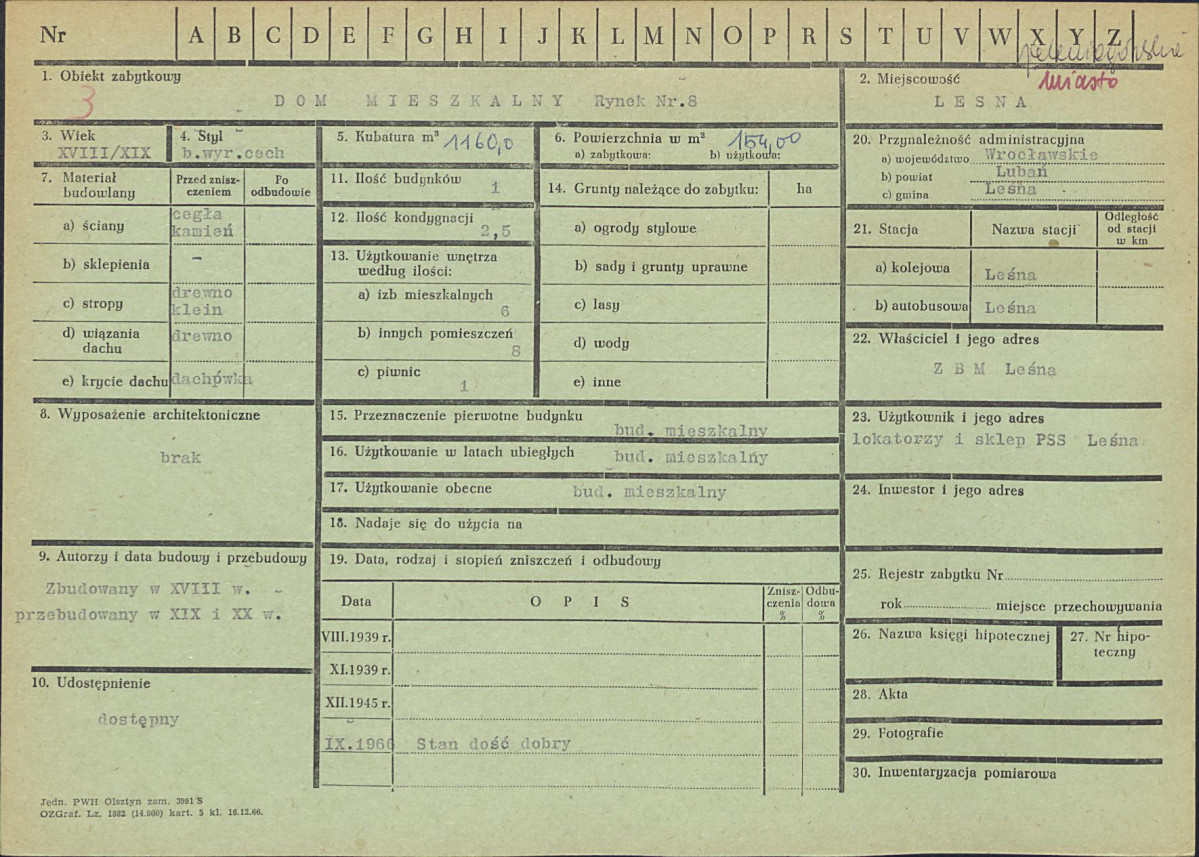 Nr A B C D E F G H I J K L M N O P R S T U V W X Y Z
jeleniogórskie
miasto
1. Obiekt zabytkowy
3
DOM MIESZKALNY Rynek Nr.8
2. Miejscowość
LESNA
3. Wiek
XVIII/XIX
4. Styl
b.wyr.cech
5. Kubatura m³ 1160,0
6. Powierzchnia w m² 154,00
a) zabytkowa: b) użytkowa:
7. Materiał budowlany
Przed zniszczeniem
Po odbudowie
a) ściany cegła kamień
b) sklepienia –
c) stropy drewno klein
d) wiązania dachu drewno
e) krycie dachu dachówka
8. Wyposażenie architektoniczne
brak
9. Autorzy i data budowy i przebudowy
Zbudowany w XVIII w. -
przebudowany w XIX i XX w.
10. Udostępnienie
dostępny
11. Ilość budynków
1
12. Ilość kondygnacji
2,5
13. Użytkowanie wnętrza
według ilości:
a) izb mieszkalnych
6
b) innych pomieszczeń
8
c) piwnic
1
14. Grunty należące do zabytku: ha
a) ogrody stylowe
b) sady i grunty uprawne
c) lasy
d) wody
e) inne
15. Przeznaczenie pierwotne budynku
bud. mieszkalny
16. Użytkowanie w latach ubiegłych bud. mieszkalny
17. Użytkowanie obecne bud. mieszkalny
18. Nadaje się do użycia na
19. Data, rodzaj i stopień zniszczeń i odbudowy
Data OPIS Zniszczenia % Odbudowa %
VIII.1939 r.
XI.1939 r.
XII.1945 r.
IX.1966 Stan dość dobry
20. Przynależność administracyjna
a) województwo Wrocławskie
b) powiat Lubań
c) gmina Leśna
21. Stacja Nazwa stacji Odległość od stacji w km
a) kolejowa Leśna
b) autobusowa Leśna
22. Właściciel i jego adres
Z B M Leśna
23. Użytkownik i jego adres
lokatorzy i sklep PSS Leśna
24. Inwestor i jego adres
25. Rejestr zabytku Nr
rok miejsce przechowywania
26. Nazwa księgi hipotecznej
27. Nr hipoteczny
28. Akta
29. Fotografie
30. Inwentaryzacja pomiarowa
Jedn. PWH Olsztyn zam. 3991 S
OZGraf. Lz. 1882 (14.000) kart. 5 kl. 16.12.66.